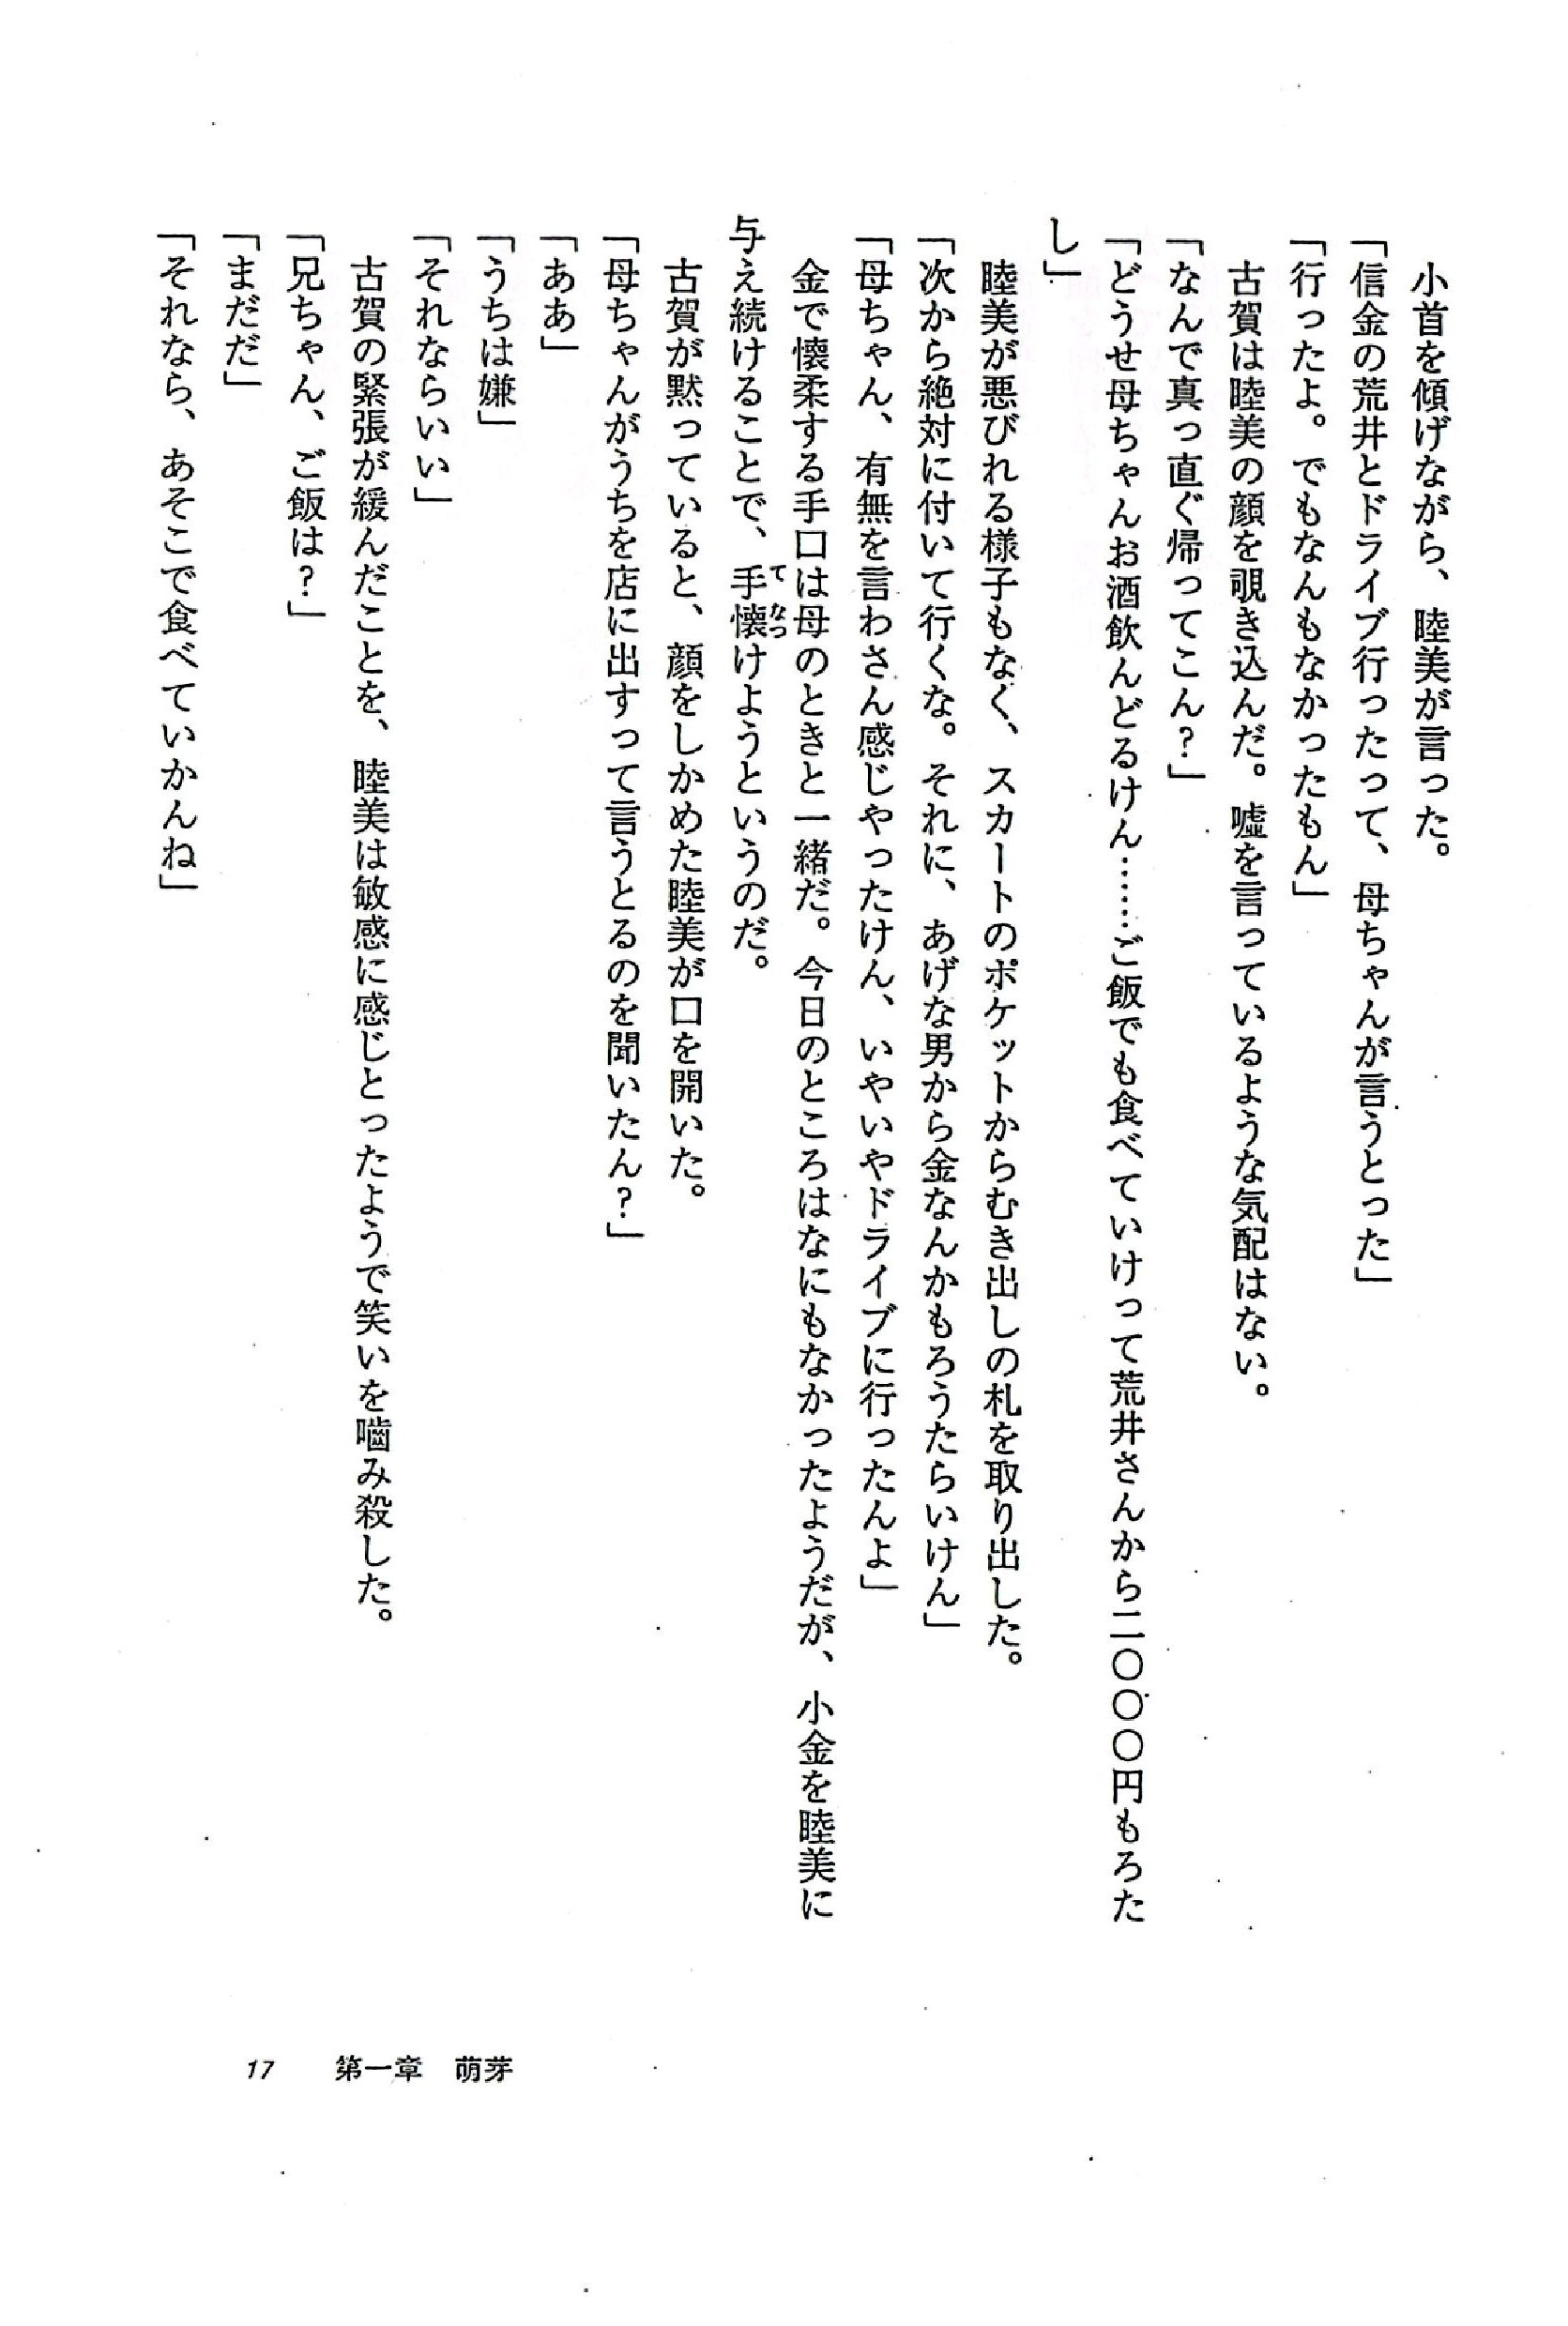 小首を傾げながら、睦美が言った。
「信金の荒井とドライブ行ったって、母ちゃんが言うとった」
「行ったよ。でもなんもなかったもん」
　古賀は睦美の顔を覗き込んだ。嘘を言っているような気配はない。
「なんで真っ直ぐ帰ってこん？」
「どうせ母ちゃんお酒飲んどるけん……ご飯でも食べていけって荒井さんから二〇〇〇円もろた
し」
　睦美が悪びれる様子もなく、スカートのポケットからむき出しの札を取り出した。
「次から絶対に付いて行くな。それに、あげな男から金なんかもろうたらいけん」
「母ちゃん、有無を言わさん感じやったけん、いやいやドライブに行ったんよ」
　金で懐柔する手口は母のときと一緒だ。今日のところはなにもなかったようだが、小金を睦美に
与え続けることで、手懐けようというのだ。
てなつ
　古賀が黙っていると、顔をしかめた睦美が口を開いた。
「母ちゃんがうちを店に出すって言うとるのを聞いたん？」
「ああ」
「うちは嫌」
「それならいい」
　古賀の緊張が緩んだことを、睦美は敏感に感じとったようで笑いを嚙み殺した。
「兄ちゃん、ご飯は？」
「まだだ」
「それなら、あそこで食べていかんね」
17　第一章　萌芽